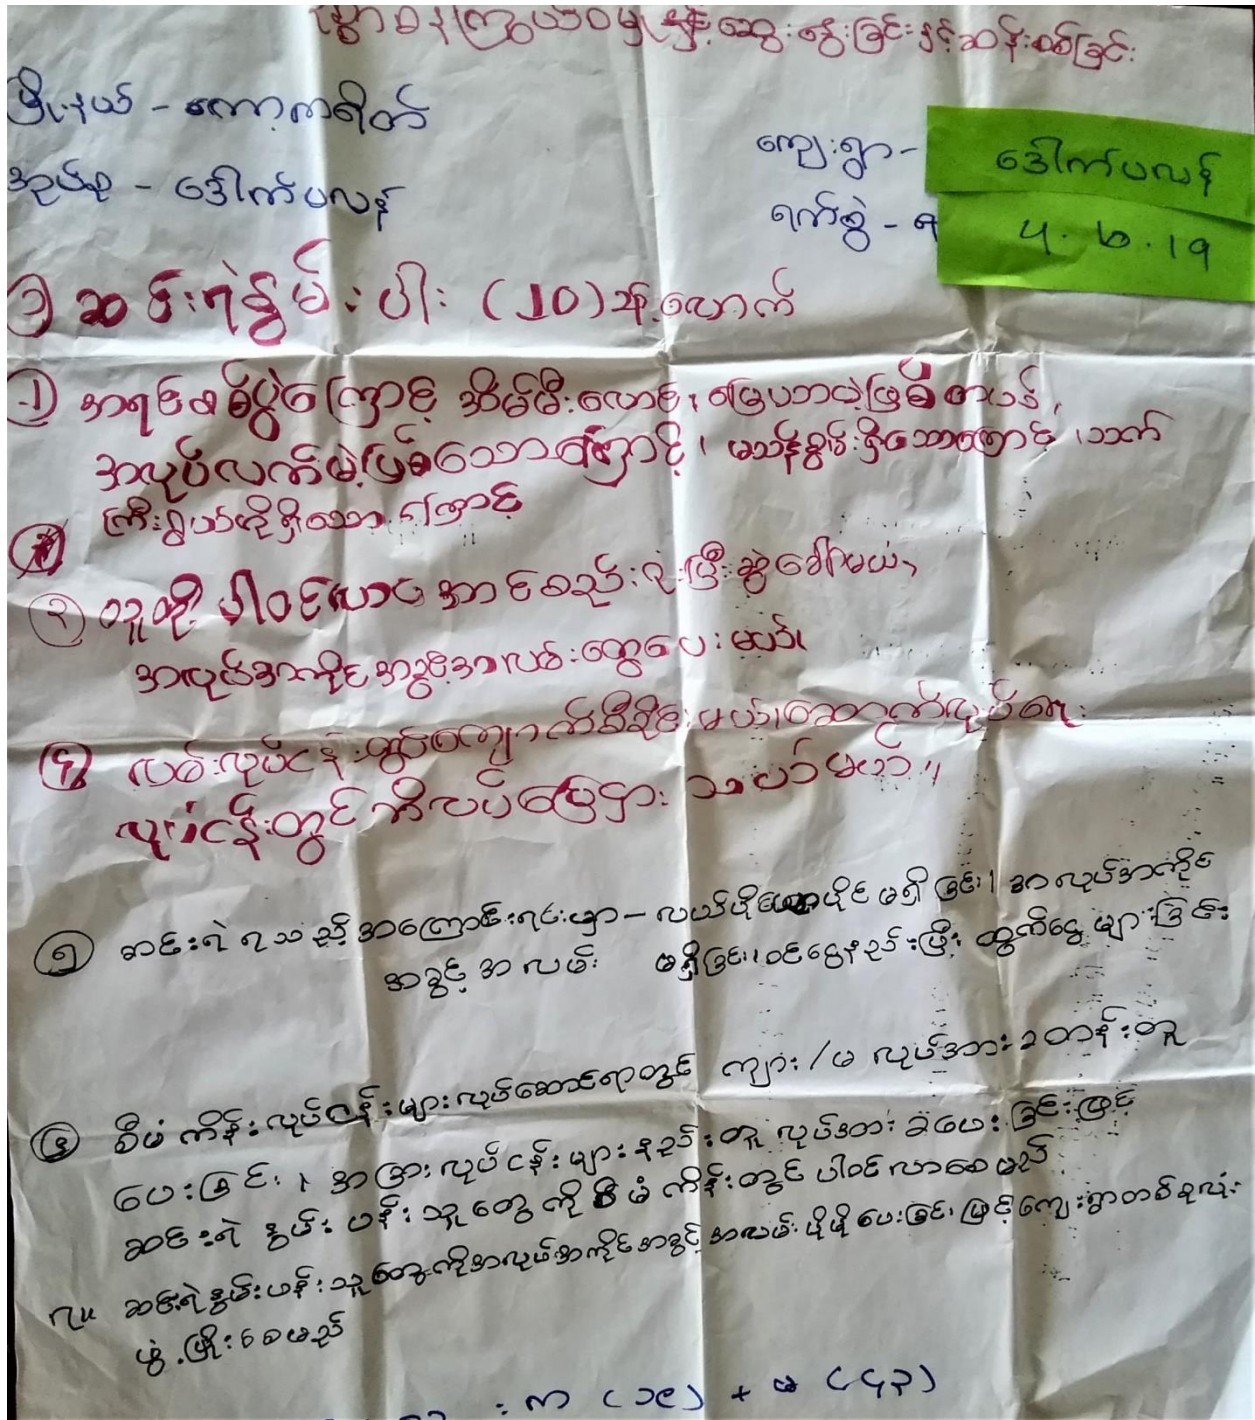 ရွာဓနကြွယ်ဝမှု ဆွေးနွေးခြင်းနှင့်ဆန်းစစ်ခြင်း
မြို့နယ် - ကော့ကရိတ်
ကျေးရွာ - ဒေါက်ပလန်
အုပ်စု - ဒေါက်ပလန်
ရက်စွဲ - ၅.၆.19
၁ ဆင်းရဲနွမ်းပါး (၂၀) ခန့်လောက်
၂ အရင်စစ်ပွဲကြောင့် အိမ်မီးလောင်၊ မြေပဘာမဲ့ဖြစ်တယ်၊
အလုပ်လက်မဲ့ဖြစ်သောကြောင့်၊ မသန်စွမ်းရှိသောကြောင့်၊ သက်
ကြီးရွယ်အိုရှိသောကြောင့်
၃ သူတို့ ပါဝင်လာအောင်စည်းရုံးပြီးဆွဲခေါ်မယ်၊
အလုပ်အကိုင်အခွင့်အလမ်းတွေပေးမယ်၊
၄ လမ်းလုပ်ငန်းတွင်ကျောက်စီခိုင်းမယ်၊ဆောက်လုပ်ရေး
လုပ်ငန်းတွင်ဘိလပ်မြေငှားသယ်မယ်။
၅ ဆင်းရဲရသည့်အကြောင်းရင်းမှာ - လယ်ပိုင်ယာပိုင်မရှိခြင်း၊ အလုပ်အကိုင်
အခွင့်အလမ်း မရှိခြင်း၊ဝင်ငွေနည်းပြီး ထွက်ငွေများခြင်း
၆ စီမံကိန်းလုပ်ငန်းများလုပ်ဆောင်ရာတွင် ကျား/မ လုပ်အားခတန်းတူ
ပေးခြင်း၊ အခြားလုပ်ငန်းများနည်းတူ လုပ်အားခပေးခြင်းဖြင့်
ဆင်းရဲနွမ်းပန်းသူတွေကို စီမံကိန်းတွင် ပါဝင်လာစေမည်
၇။ ဆင်းရဲနွမ်းပန်းသူတွေကိုအလုပ်အကိုင်အခွင့်အလမ်းပိုမိုပေးခြင်းဖြင့်ကျေးရွာတစ်ခုလုံး
ဖွံ့ဖြိုးစေမည်
: ကျ (၁၉) + မ (၄၃)